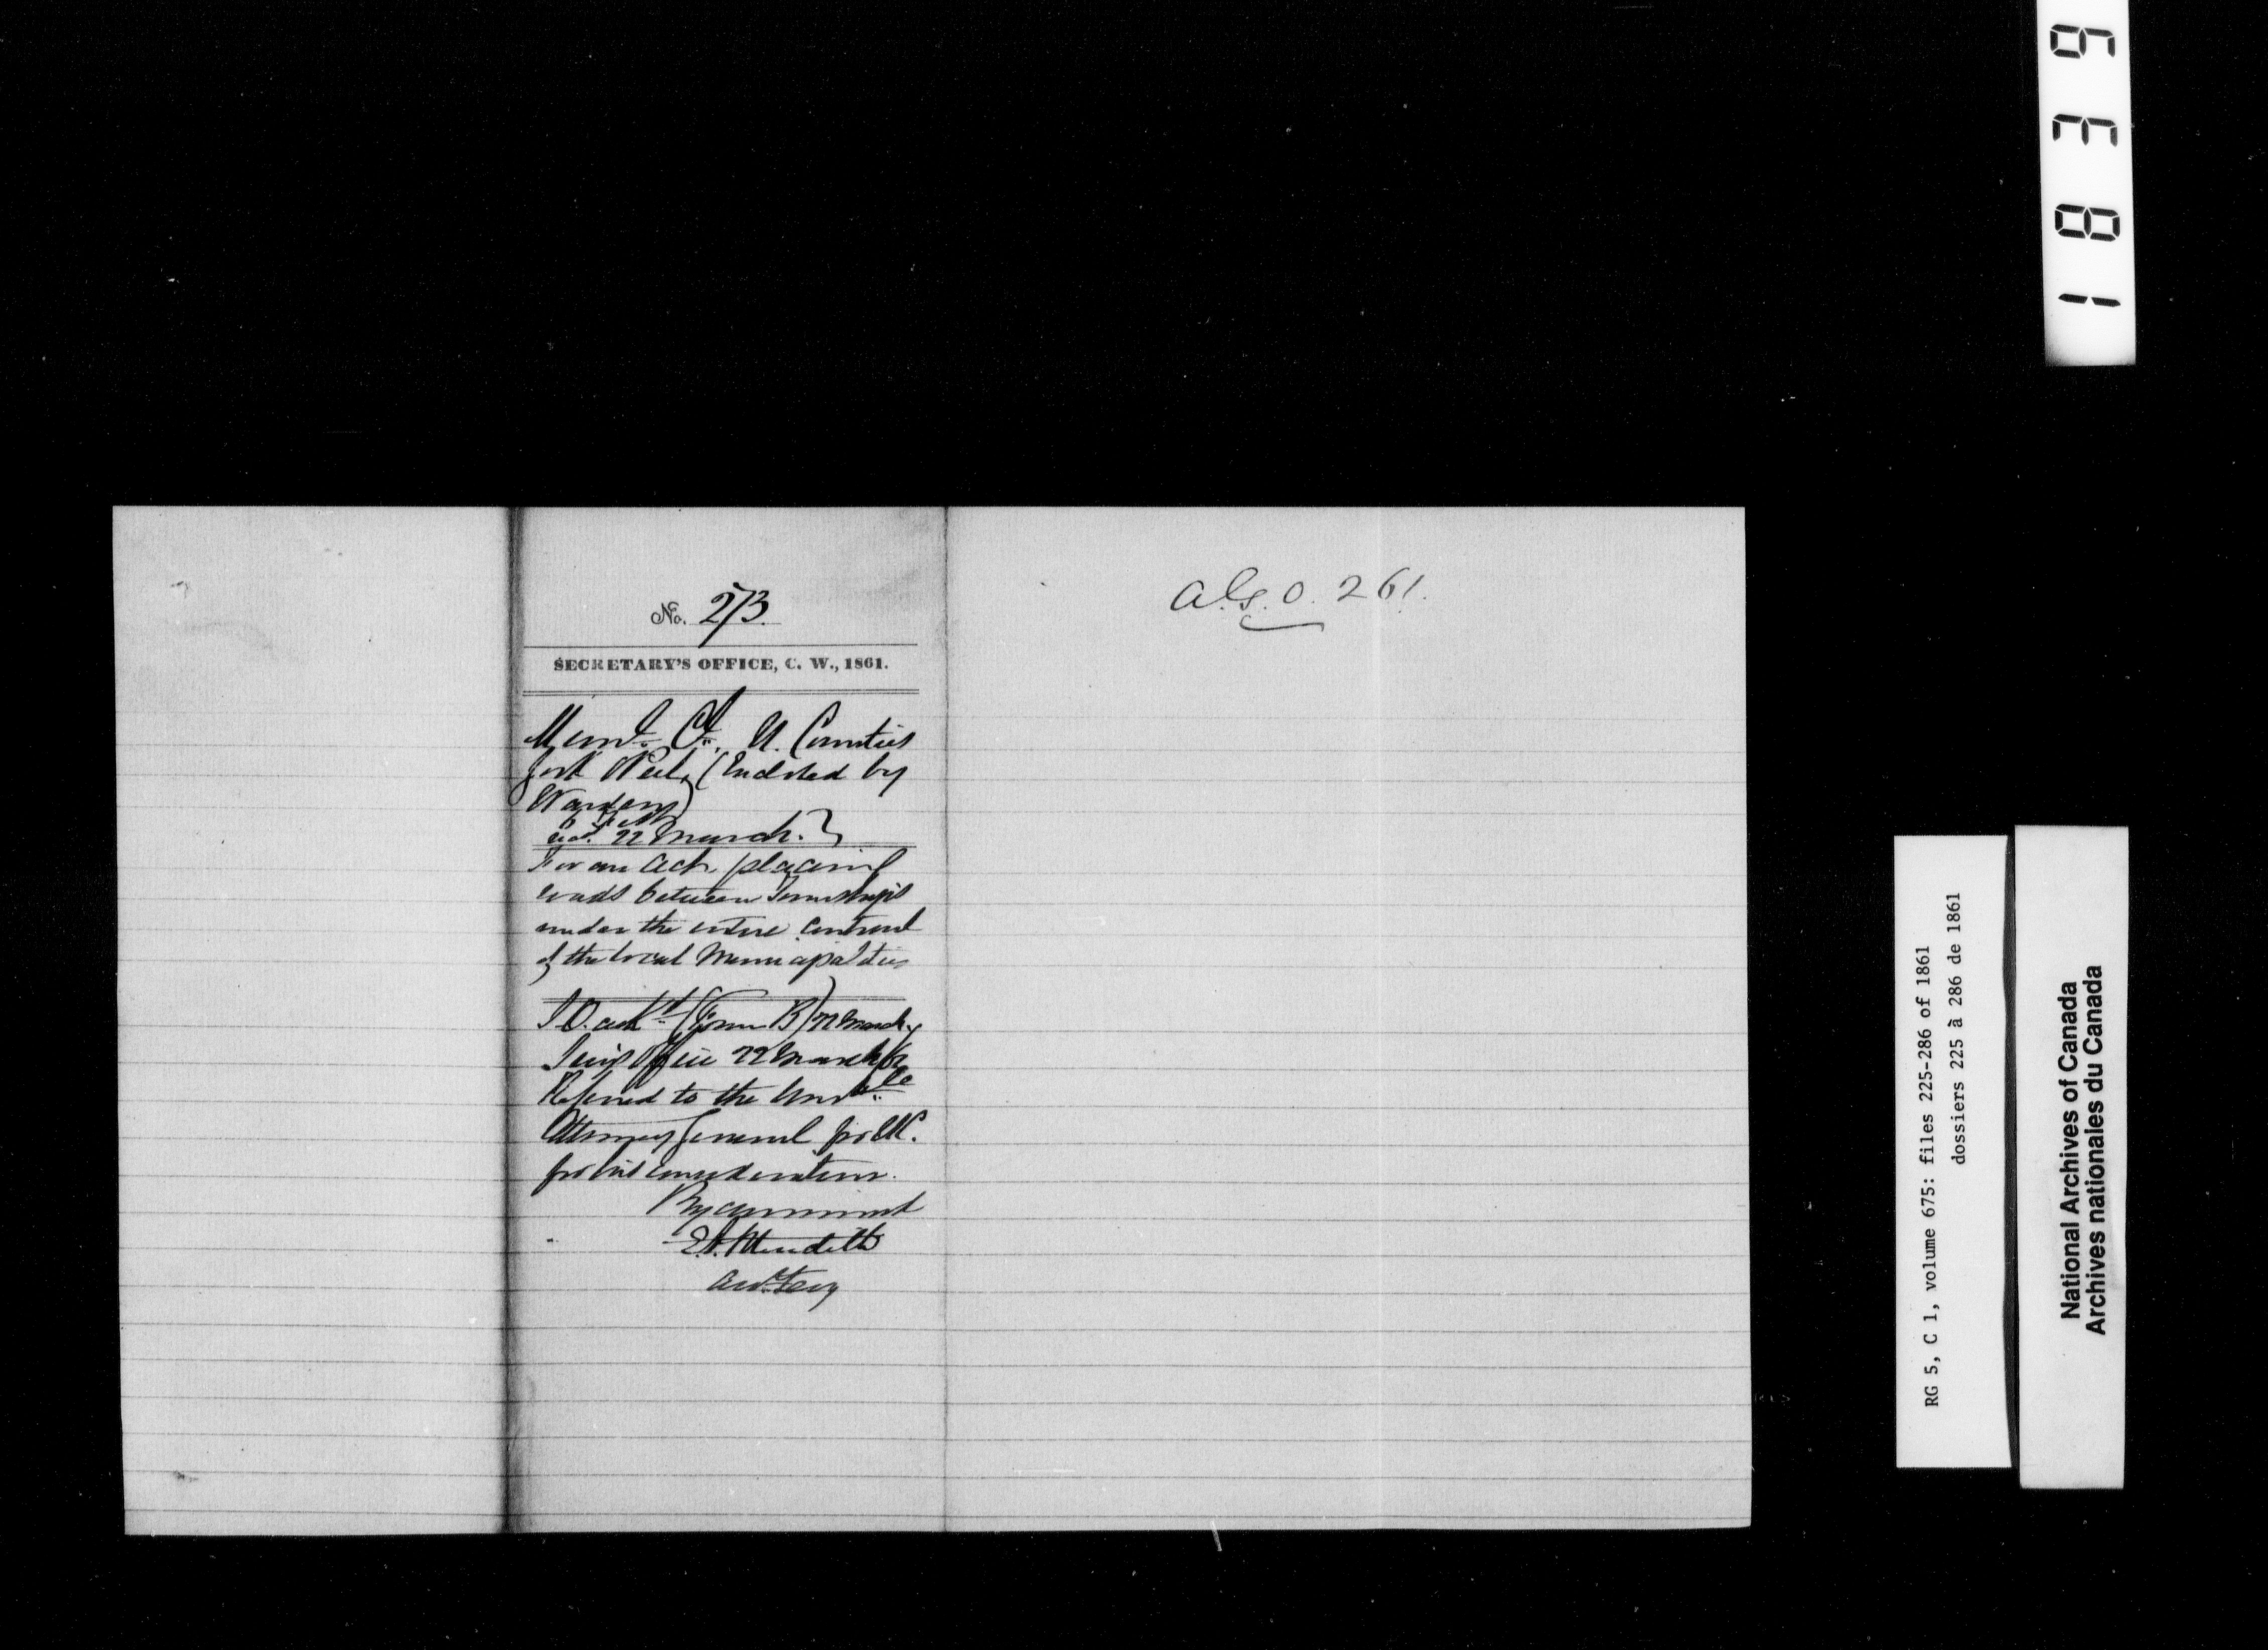 No. 273.
SECRETARY'S OFFICE, C. W., 1861.
Munl. Cl., U. Counties
York & Peel, (Enclosed by
Warden)
recd. 22 March.
For an Act placing
roads between Townships
under the entire Controul
of the local Municipalities
ackd. (Form B) 22 March
Office 22 March
Referred to the Honble
Attorney General for U.C.
for his consideration.
By command
E. A. Meredith
Asst. Secy
A.G.O. 261.
1839
RG 5, C 1, volume 675: files 225-286 of 1861
dossiers 225 à 286 de 1861
National Archives of Canada
Archives nationales du Canada